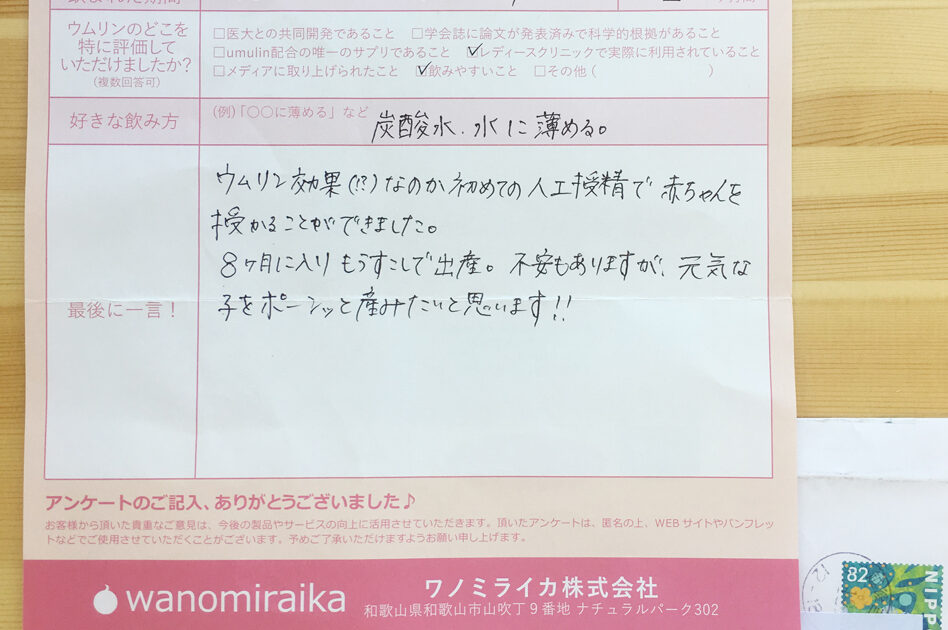 ウムリンのどこを
特に評価して
いただけましたか?
(複数回答可)
□医大との共同開発であること □学会誌に論文が発表済みで科学的根拠があること
□umulin配合の唯一のサプリであること ☑レディースクリニックで実際に利用されていること
□メディアに取り上げられたこと ☑飲みやすいこと □その他( )
好きな飲み方
(例)「○○に薄める」など
炭酸水、水に薄める。
最後に一言!
ウムリン効果(!?)なのか初めての人工授精で赤ちゃんを
授かることができました。
8ヶ月に入りもうすこしで出産。不安もありますが、元気な
子をポーンッと産みたいと思います!!
アンケートのご記入、ありがとうございました♪
お客様から頂いた貴重なご意見は、今後の製品やサービスの向上に活用させていただきます。頂いたアンケートは、匿名の上、WEBサイトやパンフレッ
トなどでご使用させていただくことがございます。予めご了承いただけますようお願い申し上げます。
wanomiraika
ワノミライカ株式会社
和歌山県和歌山市山吹丁9番地 ナチュラルパーク302
82
NIPP